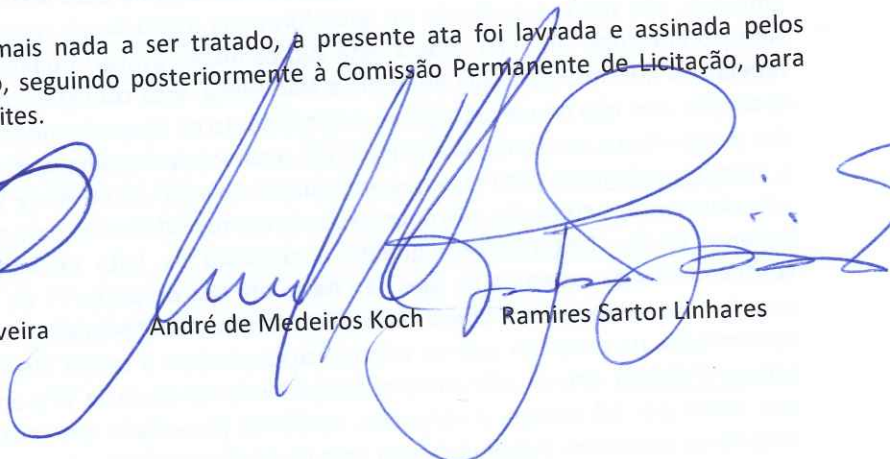 mais nada a ser tratado, a presente ata foi lavrada e assinada pelos
o, seguindo posteriormente à Comissão Permanente de Licitação, para
ites.
veira André de Medeiros Koch Ramires Sartor Linhares